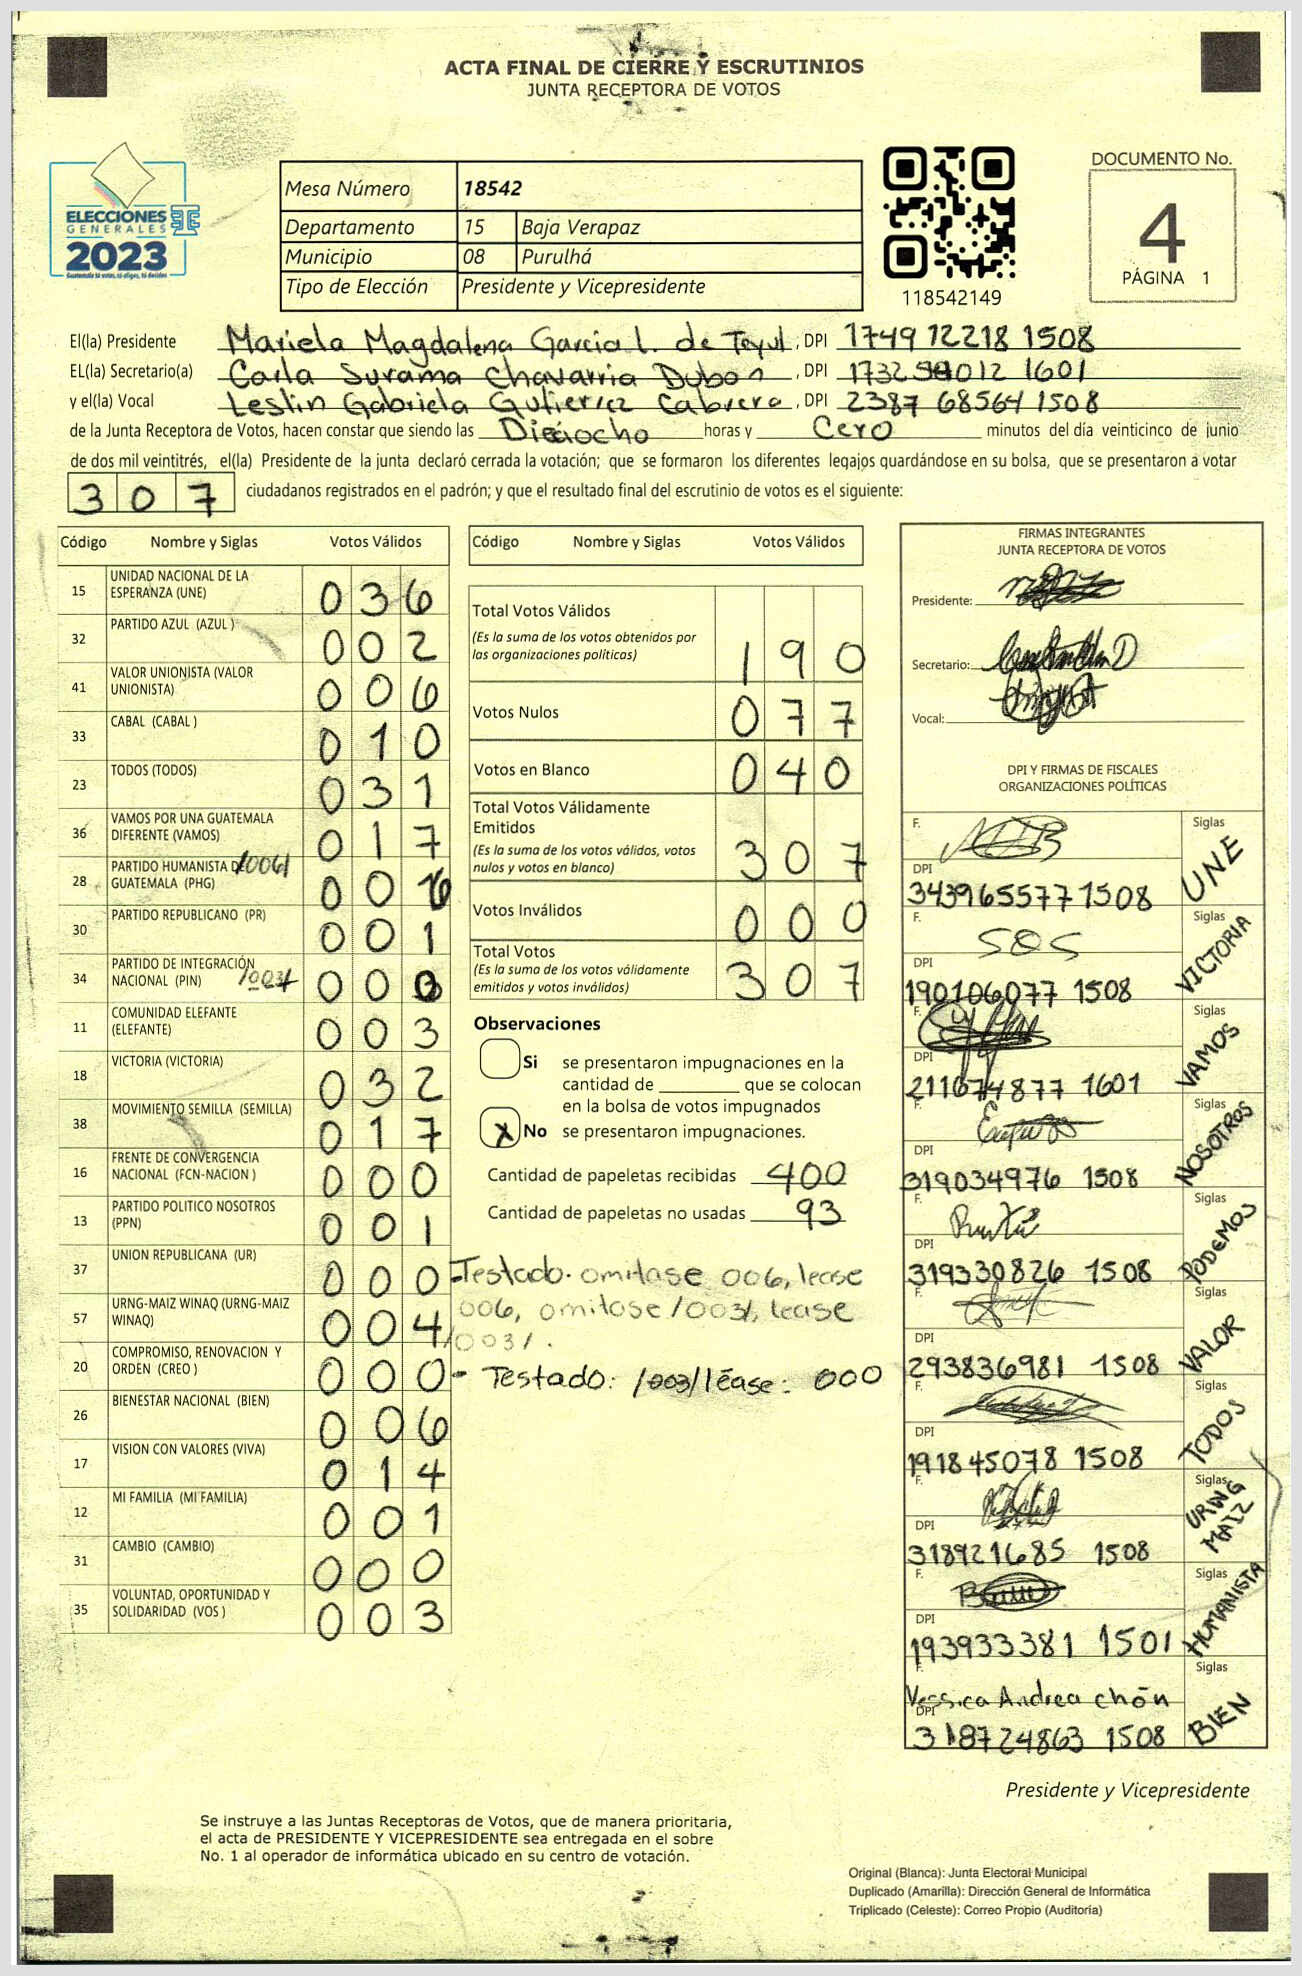 ACTA FINAL DE CIERRE Y ESCRUTINIOS
JUNTA RECEPTORA DE VOTOS
ELECCIONES
GENERALES
2023
Mesa Número 18542
Departamento 15 Baja Verapaz
Municipio 08 Purulhá
Tipo de Elección Presidente y Vicepresidente
118542149
DOCUMENTO No.
4
PÁGINA 1
El(la) Presidente Mariela Magdalena Garcia L. de Teyul, DPI 1749 12218 1508
EL(la) Secretario(a) Carla Surama Chavarria Dubon, DPI 1601
y el(la) Vocal Leslin Gabriela Gutierrez Cabrera, DPI 2387 68564 1508
de la Junta Receptora de Votos, hacen constar que siendo las Dieciocho horas y Cero minutos del día veinticinco de junio
de dos mil veintitrés, el(la) Presidente de la junta declaró cerrada la votación; que se formaron los diferentes legajos quardándose en su bolsa, que se presentaron a votar
307 ciudadanos registrados en el padrón; y que el resultado final del escrutinio de votos es el siguiente:
Código Nombre y Siglas Votos Válidos
15 UNIDAD NACIONAL DE LA ESPERANZA (UNE) 036
32 PARTIDO AZUL (AZUL ) 002
41 VALOR UNIONISTA (VALOR UNIONISTA) 006
33 CABAL (CABAL ) 010
23 TODOS (TODOS) 031
36 VAMOS POR UNA GUATEMALA DIFERENTE (VAMOS) 017
28 PARTIDO HUMANISTA DE GUATEMALA (PHG) /006/ 006
30 PARTIDO REPUBLICANO (PR) 001
34 PARTIDO DE INTEGRACIÓN NACIONAL (PIN) /003/ 000
11 COMUNIDAD ELEFANTE (ELEFANTE) 003
18 VICTORIA (VICTORIA) 032
38 MOVIMIENTO SEMILLA (SEMILLA) 017
16 FRENTE DE CONVERGENCIA NACIONAL (FCN-NACION ) 000
13 PARTIDO POLITICO NOSOTROS (PPN) 001
37 UNION REPUBLICANA (UR) 000
57 URNG-MAIZ WINAQ (URNG-MAIZ WINAQ) 004
20 COMPROMISO, RENOVACION Y ORDEN (CREO ) 000
26 BIENESTAR NACIONAL (BIEN) 006
17 VISION CON VALORES (VIVA) 014
12 MI FAMILIA (MI FAMILIA) 001
31 CAMBIO (CAMBIO) 000
35 VOLUNTAD, OPORTUNIDAD Y SOLIDARIDAD (VOS ) 003
Código Nombre y Siglas Votos Válidos
Total Votos Válidos 190
(Es la suma de los votos obtenidos por
las organizaciones políticas)
Votos Nulos 077
Votos en Blanco 040
Total Votos Válidamente
Emitidos 307
(Es la suma de los votos válidos, votos
nulos y votos en blanco)
Votos Inválidos 000
Total Votos 307
(Es la suma de los votos válidamente
emitidos y votos inválidos)
Observaciones
Si se presentaron impugnaciones en la
cantidad de ________ que se colocan
en la bolsa de votos impugnados
X No se presentaron impugnaciones.
Cantidad de papeletas recibidas 400
Cantidad de papeletas no usadas 93
-Testado. omitase 006, lease
006, omitase /003/, lease
/003/.
- Testado: /003/ léase: 000
FIRMAS INTEGRANTES
JUNTA RECEPTORA DE VOTOS
Presidente:
Secretario:
Vocal:
DPI Y FIRMAS DE FISCALES
ORGANIZACIONES POLÍTICAS
F. Siglas UNE
DPI 343965577 1508
F. SOS Siglas VICTORIA
DPI 190106077 1508
F. Siglas VAMOS
DPI 211674877 1601
F. Siglas NOSOTROS
DPI 319034976 1508
F. Siglas PODEMOS
DPI 319330826 1508
F. Siglas VALOR
DPI 293836981 1508
F. Siglas TODOS
DPI 191845078 1508
F. Siglas URNG MAIZ
DPI 318921685 1508
F. Siglas HUMANISTA
DPI 193933381 1501
F. Yessica Andrea Chón Siglas BIEN
DPI 318724863 1508
Presidente y Vicepresidente
Se instruye a las Juntas Receptoras de Votos, que de manera prioritaria,
el acta de PRESIDENTE Y VICEPRESIDENTE sea entregada en el sobre
No. 1 al operador de informática ubicado en su centro de votación.
Original (Blanca): Junta Electoral Municipal
Duplicado (Amarilla): Dirección General de Informática
Triplicado (Celeste): Correo Propio (Auditoría)